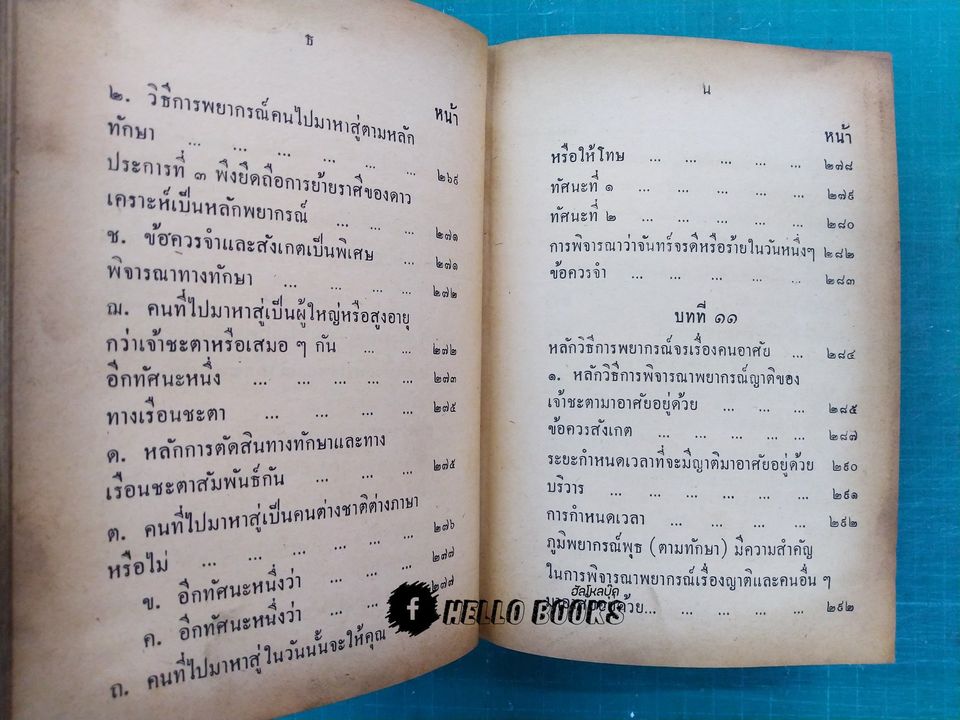 ธ
หน้า
๒. วิธีการพยากรณ์คนไปมาหาสู่ตามหลัก
ทักษา ... ... ... ... ... ๒๖๙
ประการที่ ๓ พึงยึดถือการย้ายราศีของดาว
เคราะห์เป็นหลักพยากรณ์ ... ... ... ๒๗๑
ช. ข้อควรจำและสังเกตเป็นพิเศษ ... ๒๗๑
พิจารณาทางทักษา ... ... ... ... ๒๗๒
ฌ. คนที่ไปมาหาสู่เป็นผู้ใหญ่หรือสูงอายุ
กว่าเจ้าชะตาหรือเสมอ ๆ กัน ... ... ๒๗๒
อีกทัศนะหนึ่ง ... ... ... ... ... ๒๗๓
ทางเรือนชะตา ... ... ... ... ๒๗๕
ด. หลักการตัดสินทางทักษาและทาง
เรือนชะตาสัมพันธ์กัน ... ... ๒๗๕
ต. คนที่ไปมาหาสู่เป็นคนต่างชาติต่างภาษา
หรือไม่ ... ... ... ... ... ๒๗๖
ข. อีกทัศนะหนึ่งว่า ... ... ... ๒๗๗
ค. อีกทัศนะหนึ่งว่า ... ... ... ๒๗๗
ถ. คนที่ไปมาหาสู่ในวันนั้นจะให้คุณ
น
หน้า
หรือให้โทษ ... ... ... ... ... ๒๗๘
ทัศนะที่ ๑ ... ... ... ... ๒๗๙
ทัศนะที่ ๒ ... ... ... ... ๒๘๐
การพิจารณาว่าจันทร์จรดีหรือร้ายในวันหนึ่งๆ ๒๘๒
ข้อควรจำ ... ... ... ... ... ๒๘๓
บทที่ ๑๑
หลักวิธีการพยากรณ์จรเรื่องคนอาศัย ... ๒๘๔
๑. หลักวิธีการพิจารณาพยากรณ์ญาติของ
เจ้าชะตามาอาศัยอยู่ด้วย ... ... ... ๒๘๕
ข้อควรสังเกต ... ... ... ... ... ๒๘๗
ระยะกำหนดเวลาที่จะมีญาติมาอาศัยอยู่ด้วย ๒๙๐
บริวาร ... ... ... ... ... ... ๒๙๑
การกำหนดเวลา ... ... ... ... ๒๙๒
ภูมิพยากรณ์พุธ (ตามทักษา) มีความสำคัญ
ในการพิจารณาพยากรณ์เรื่องญาติและคนอื่น ๆ
ด้วย... ... ... ... ... ๒๙๒
ฮัลโหลบุ๊ค
f HELLO BOOKS